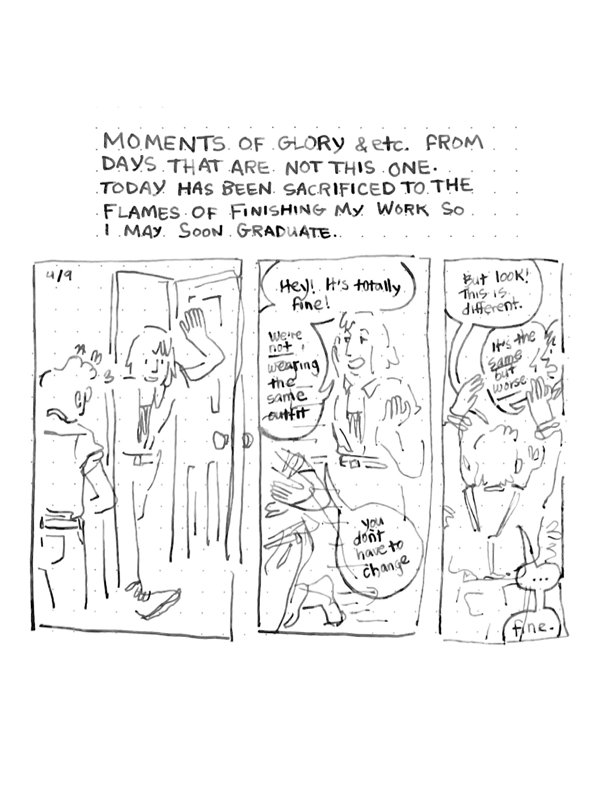 MOMENTS OF GLORY & etc. FROM
DAYS THAT ARE NOT THIS ONE.
TODAY HAS BEEN SACRIFICED TO THE
FLAMES OF FINISHING MY WORK SO
I MAY SOON GRADUATE.
4/9
Hey! It's totally
fine!
We're
not
wearing
the
same
outfit
you
don't
have to
change
But look!
This is
different.
It's the
same
but
worse
...
fine.